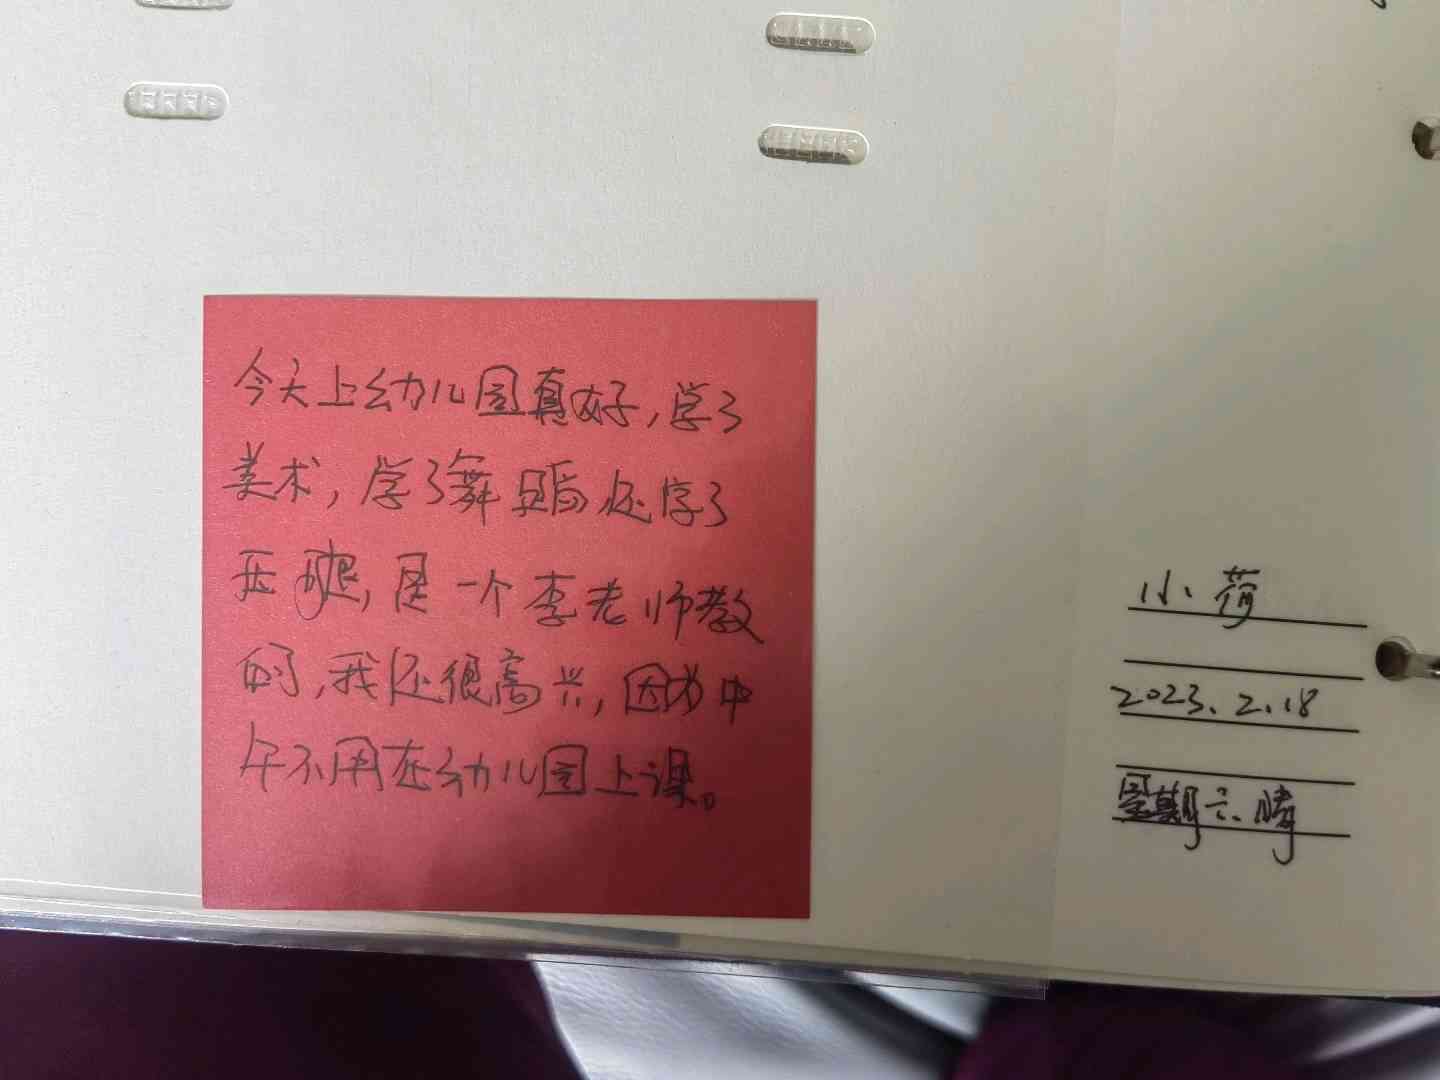 今天上幼儿园真好，学了
美术，学了舞蹈还学了
压腿，是一个李老师教
的，我还很高兴，因为中
午不用在幼儿园上课。
小荷
2023.2.18
星期六、晴